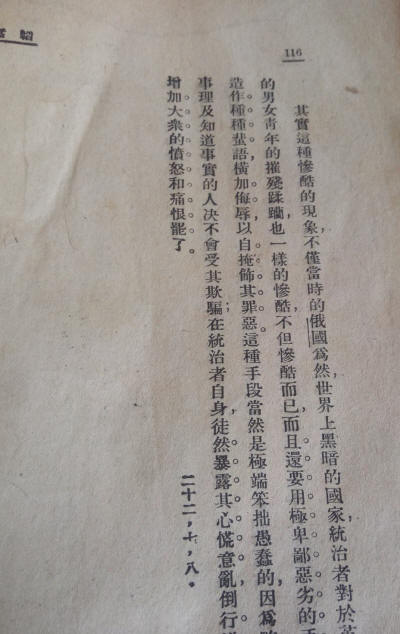 116
其實這種慘酷的現象，不僅當時的俄國爲然，世界上黑暗的國家，統治者對於
的男女青年的摧殘蹂躪，也一樣的慘酷，不但慘酷而已，而且還要用極卑鄙惡劣的
造作種種蜚語，橫加侮辱，以自掩飾其罪惡。這種手段當然是極端笨拙愚蠢的，因爲
事理及知道事實的人，决不會受其欺騙；在統治者自身，徒然暴露其心慌意亂，倒行
增加大衆的憤怒和痛恨罷了。
二十二，七，八。